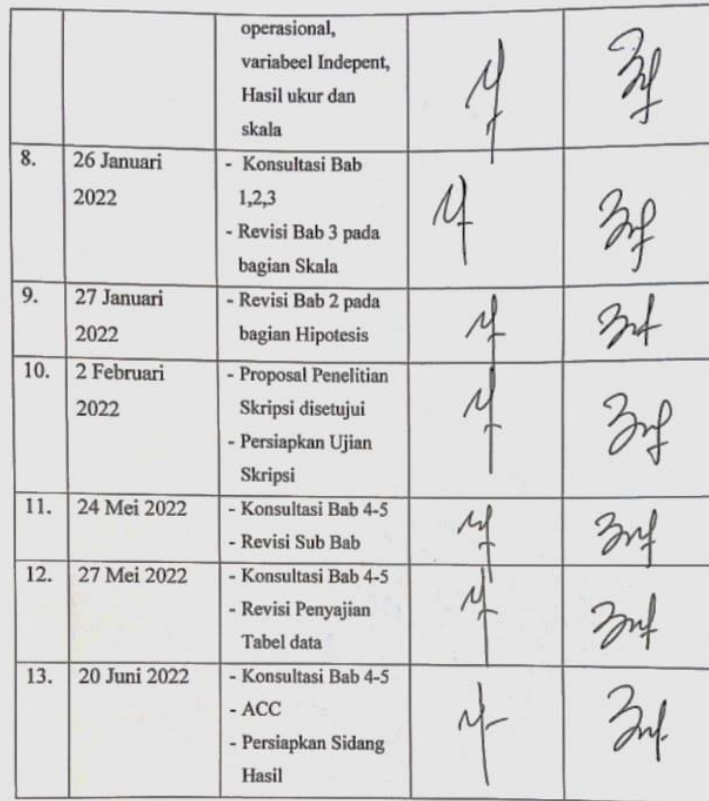 operasional,
variabeel Indepent,
Hasil ukur dan
skala
8. 26 Januari - Konsultasi Bab
2022 1,2,3
- Revisi Bab 3 pada
bagian Skala
9. 27 Januari - Revisi Bab 2 pada
2022 bagian Hipotesis
10. 2 Februari - Proposal Penelitian
2022 Skripsi disetujui
- Persiapkan Ujian
Skripsi
11. 24 Mei 2022 - Konsultasi Bab 4-5
- Revisi Sub Bab
12. 27 Mei 2022 - Konsultasi Bab 4-5
- Revisi Penyajian
Tabel data
13. 20 Juni 2022 - Konsultasi Bab 4-5
- ACC
- Persiapkan Sidang
Hasil